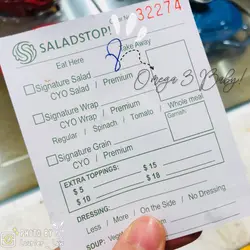 32274
SALADSTOP!
Eat Here
Take Away
Omega 3 Baby!
Signature Salad
CYO Salad / Premium
Signature Wrap
CYO Wrap / Premium
Whole meal
Regular / Spinach / Tomato /
Garnish:
Signature Grain
CYO / Premium
EXTRA TOPPINGS:
$ 5
$ 15
$ 10
$ 18
DRESSING:
Less / More / On the Side / No Dressing
SOUP: